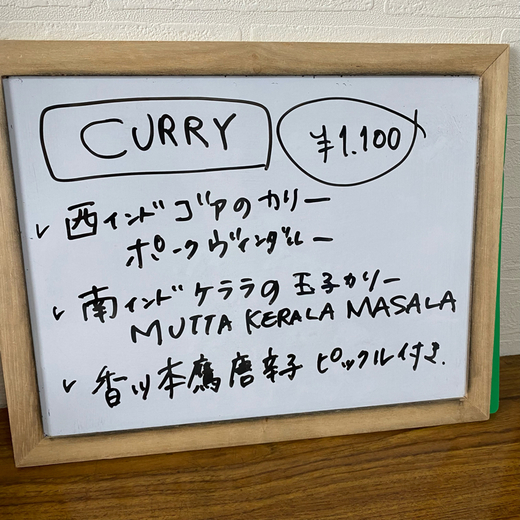 CURRY ¥1.100
✓ 西インド ゴアのカリー
ポークヴィンダルー
✓ 南インド ケララの玉子カリー
MUTTA KERALA MASALA
✓ 香川本鷹唐辛子 ピックル付き.